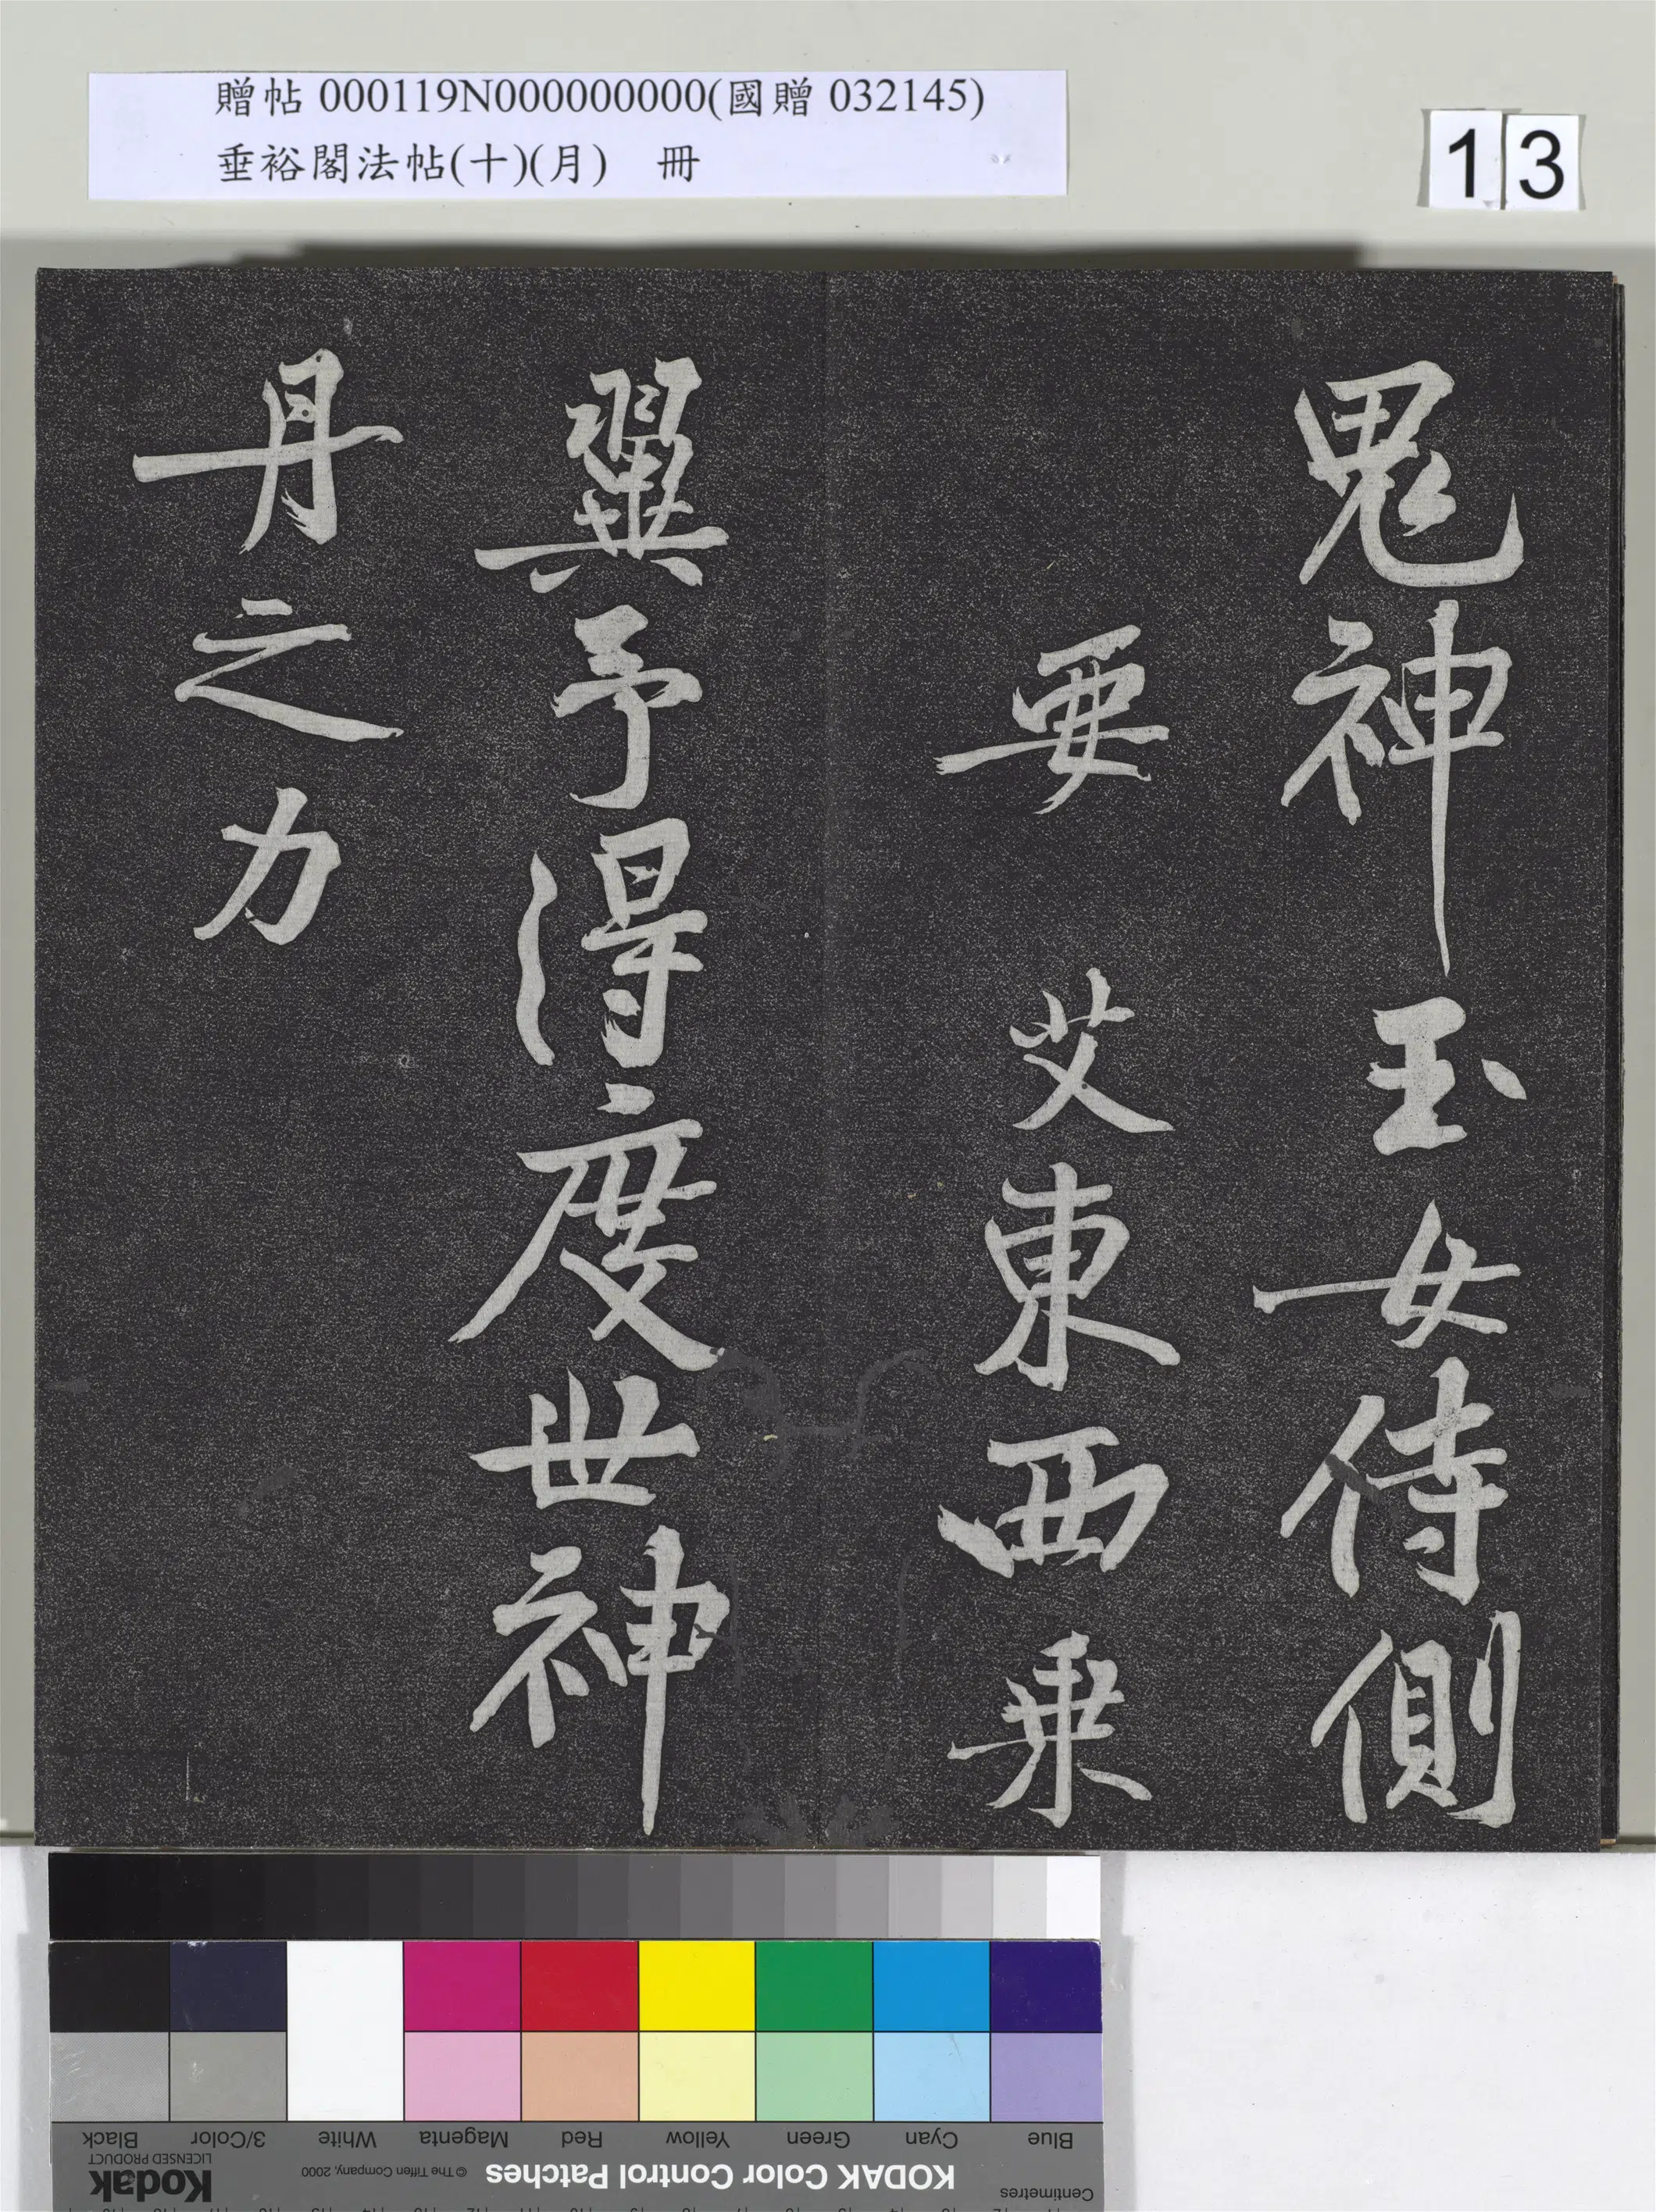 贈帖 000119N000000000(國贈 032145)
垂裕閣法帖(十)(月) 冊
13
鬼神玉女侍側
要 艾東西乗
翼予得度世神
丹之力
Blue Cyan Green Yellow Red Magenta White 3/Color Black
Centimetres KODAK Color Control Patches © The Tiffen Company, 2000 Kodak
LICENSED PRODUCT